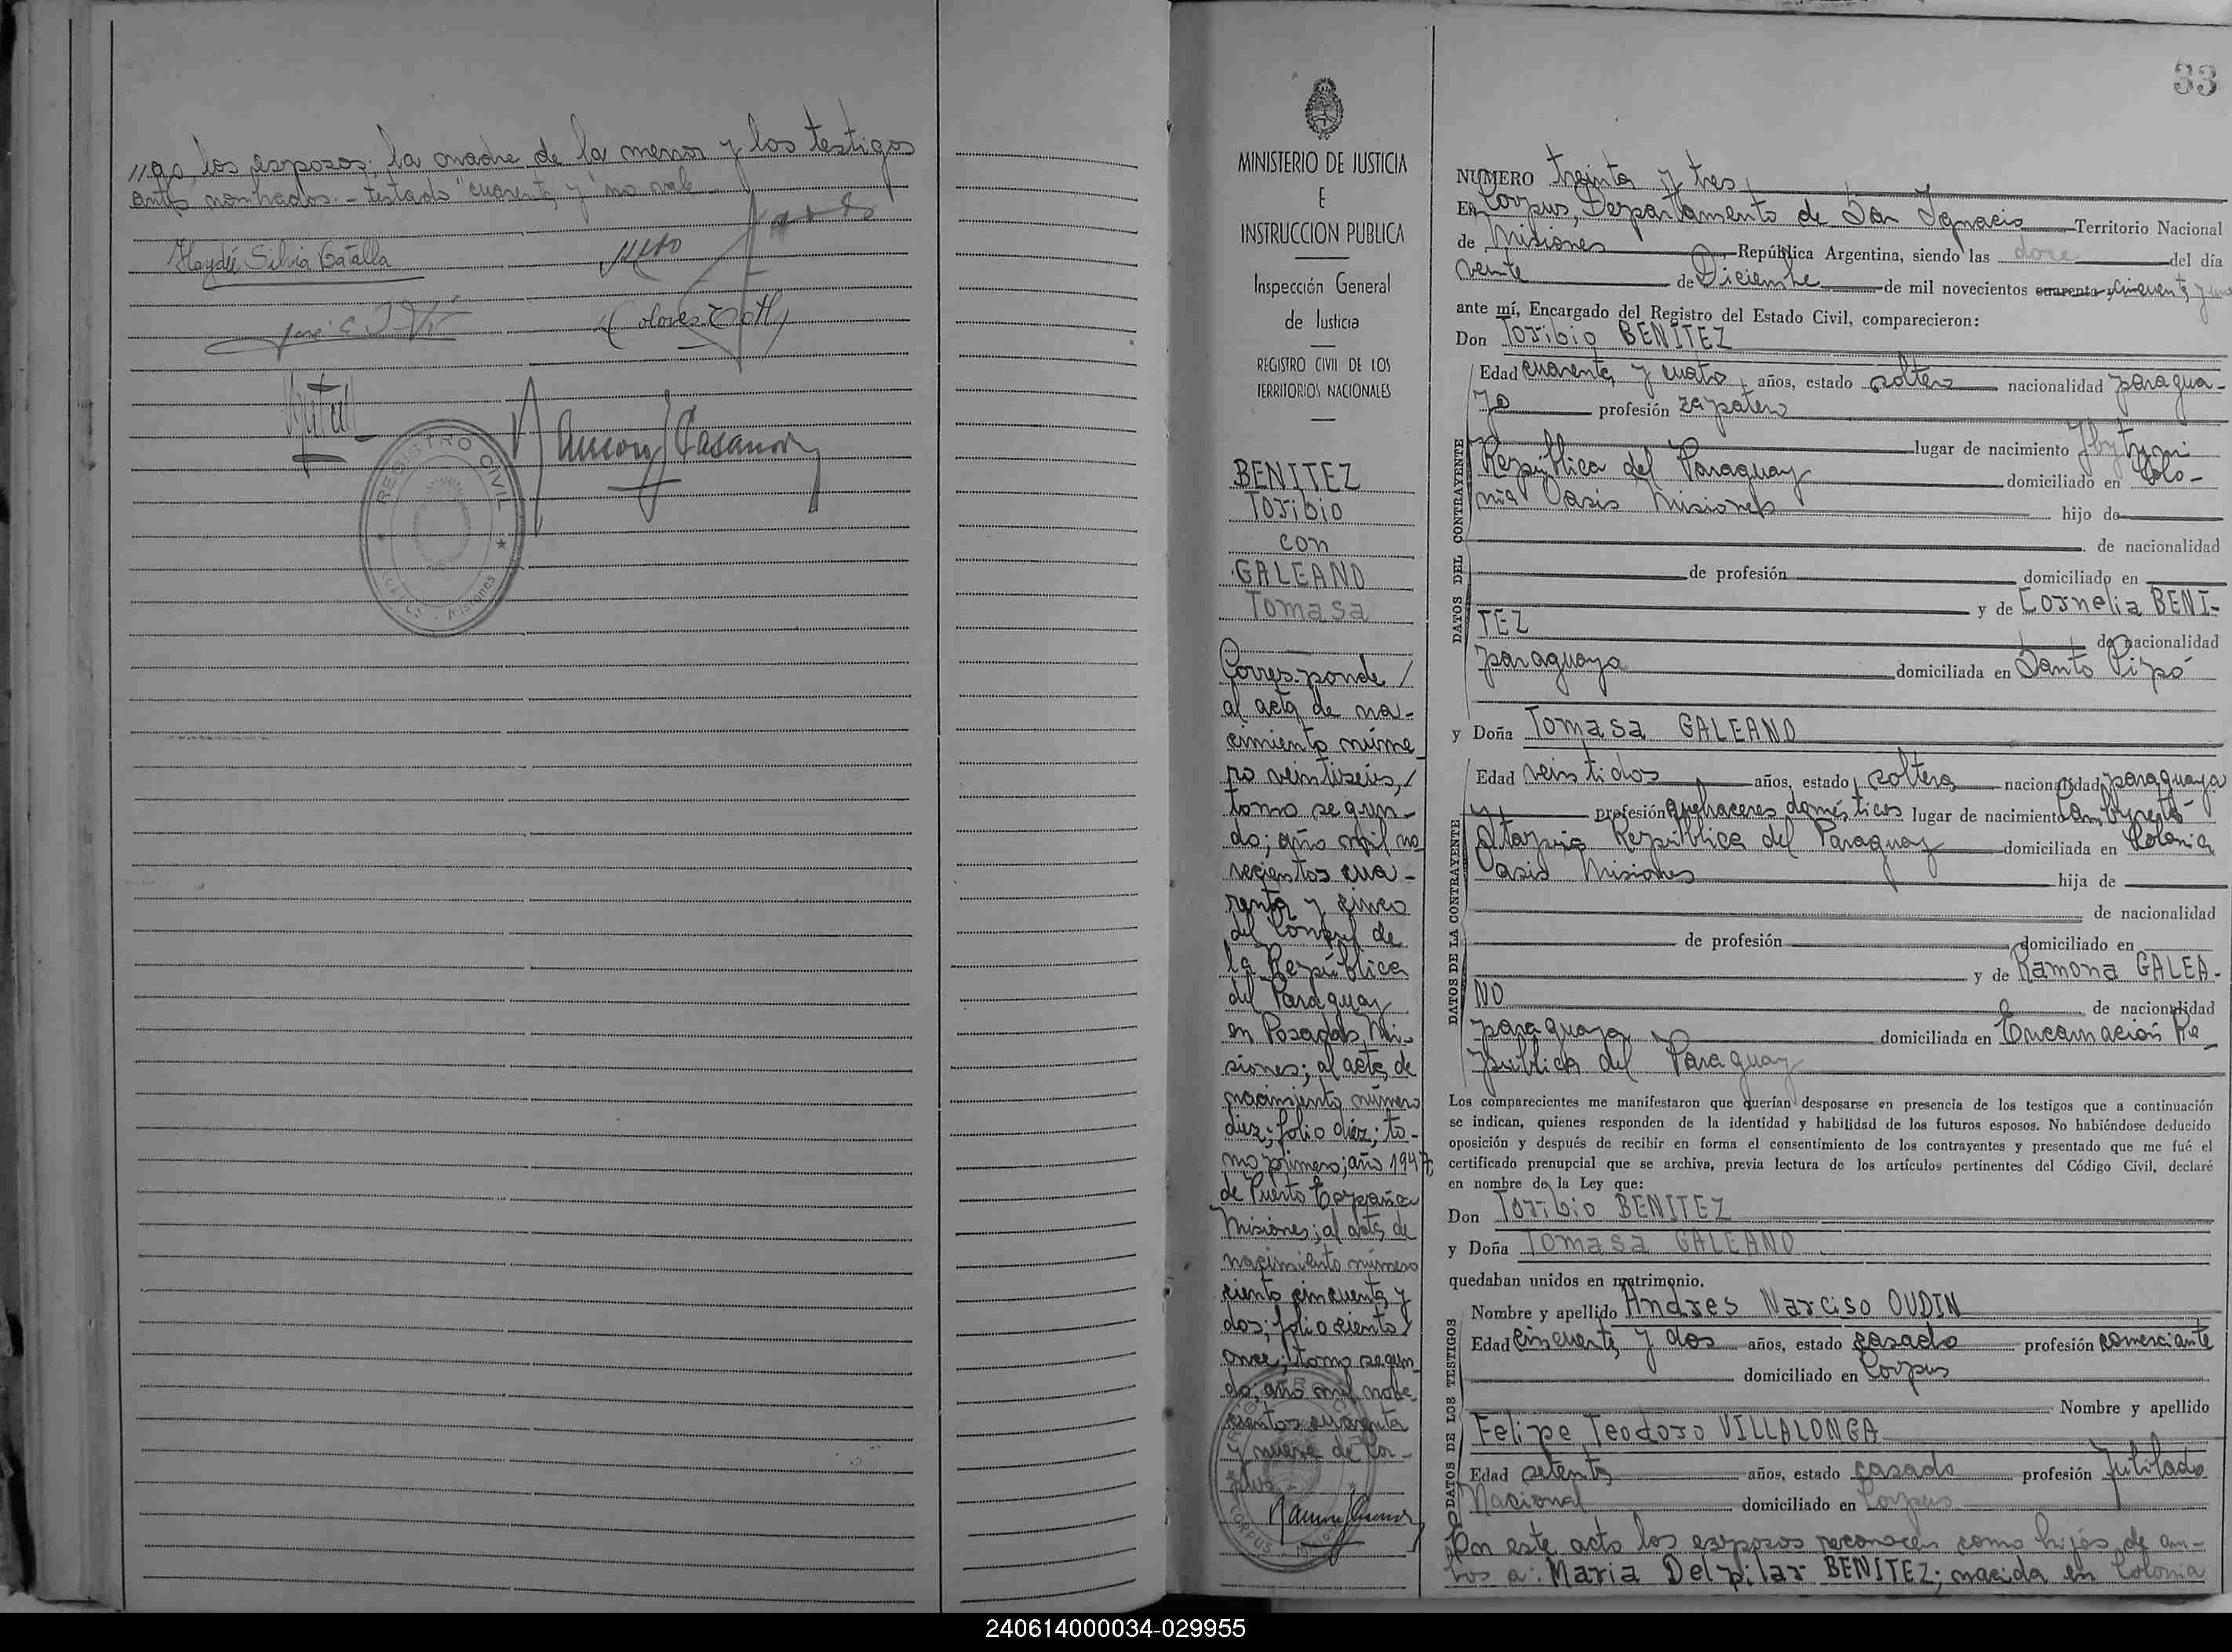 //go, los esposos; la madre de la menor y los testigos
antes nombrados. - testado "cuarenta y" no vale -
Haydée Silvia Catalla
REGISTRO CIVIL
Misiones
33
MINISTERIO DE JUSTICIA
E
INSTRUCCION PUBLICA
Inspección General
de Justicia
REGISTRO CIVIL DE LOS
TERRITORIOS NACIONALES
BENITEZ
Toribio
con
GALEANO
Tomasa
Corresponde/
al acta de na-
cimiento núme
ro veintiseis,/
tomo segun-
do; año mil no
vecientos cua-
renta y cinco
del Consul de
la República
del Paraguay
en Posadas, Mi-
siones; al acta de
nacimiento número
diez; folio diez; to-
mo primero; año 1947
de Puerto España
Misiones; al acta de
nacimiento número
ciento cincuenta y
dos; folio ciento
once; tomo segun-
do, año mil nove
cientos cuarenta
y nueve de Cor-
pus
CORPUS
NUMERO treinta y tres
En Corpus, Departamento de San Ignacio Territorio Nacional
de Misiones República Argentina, siendo las doce del día
veinte de Diciembre de mil novecientos cuarenta y cincuenta y uno
ante mí, Encargado del Registro del Estado Civil, comparecieron:
Don Toribio BENITEZ
DATOS DEL CONTRAYENTE
Edad cuarenta y cuatro años, estado soltero nacionalidad paragua-
yo profesión zapatero
lugar de nacimiento Ybytymi
República del Paraguay domiciliado en Colo-
nia Oasis Misiones hijo de
de nacionalidad
de profesión domiciliado en
y de Cornelia BENI-
TEZ de nacionalidad
paraguaya domiciliada en Santo Pipó
y Doña Tomasa GALEANO
DATOS DE LA CONTRAYENTE
Edad veintidos años, estado soltera nacionalidad paraguaya
profesión quehaceres domésticos lugar de nacimiento Cambyretá
Itapúa República del Paraguay domiciliada en Colonia
Oasis Misiones hija de
de nacionalidad
de profesión domiciliado en
y de Ramona GALEA-
NO de nacionalidad
paraguaya domiciliada en Encarnación Re-
pública del Paraguay
Los comparecientes me manifestaron que querían desposarse en presencia de los testigos que a continuación
se indican, quienes responden de la identidad y habilidad de los futuros esposos. No habiéndose deducido
oposición y después de recibir en forma el consentimiento de los contrayentes y presentado que me fué el
certificado prenupcial que se archiva, previa lectura de los artículos pertinentes del Código Civil, declaré
en nombre de la Ley que:
Don Toribio BENITEZ
y Doña Tomasa GALEANO
quedaban unidos en matrimonio.
DATOS DE LOS TESTIGOS
Nombre y apellido Andres Narciso OUDIN
Edad cincuenta y dos años, estado casado profesión comerciante
domiciliado en Corpus
Nombre y apellido
Felipe Teodoro VILLALONGA
Edad setenta años, estado casado profesión Jubilado
Nacional domiciliado en Corpus
En este acto los esposos reconocen como hijos de am-
bos a: Maria Del pilar BENITEZ; nacida en Colonia
240614000034-029955